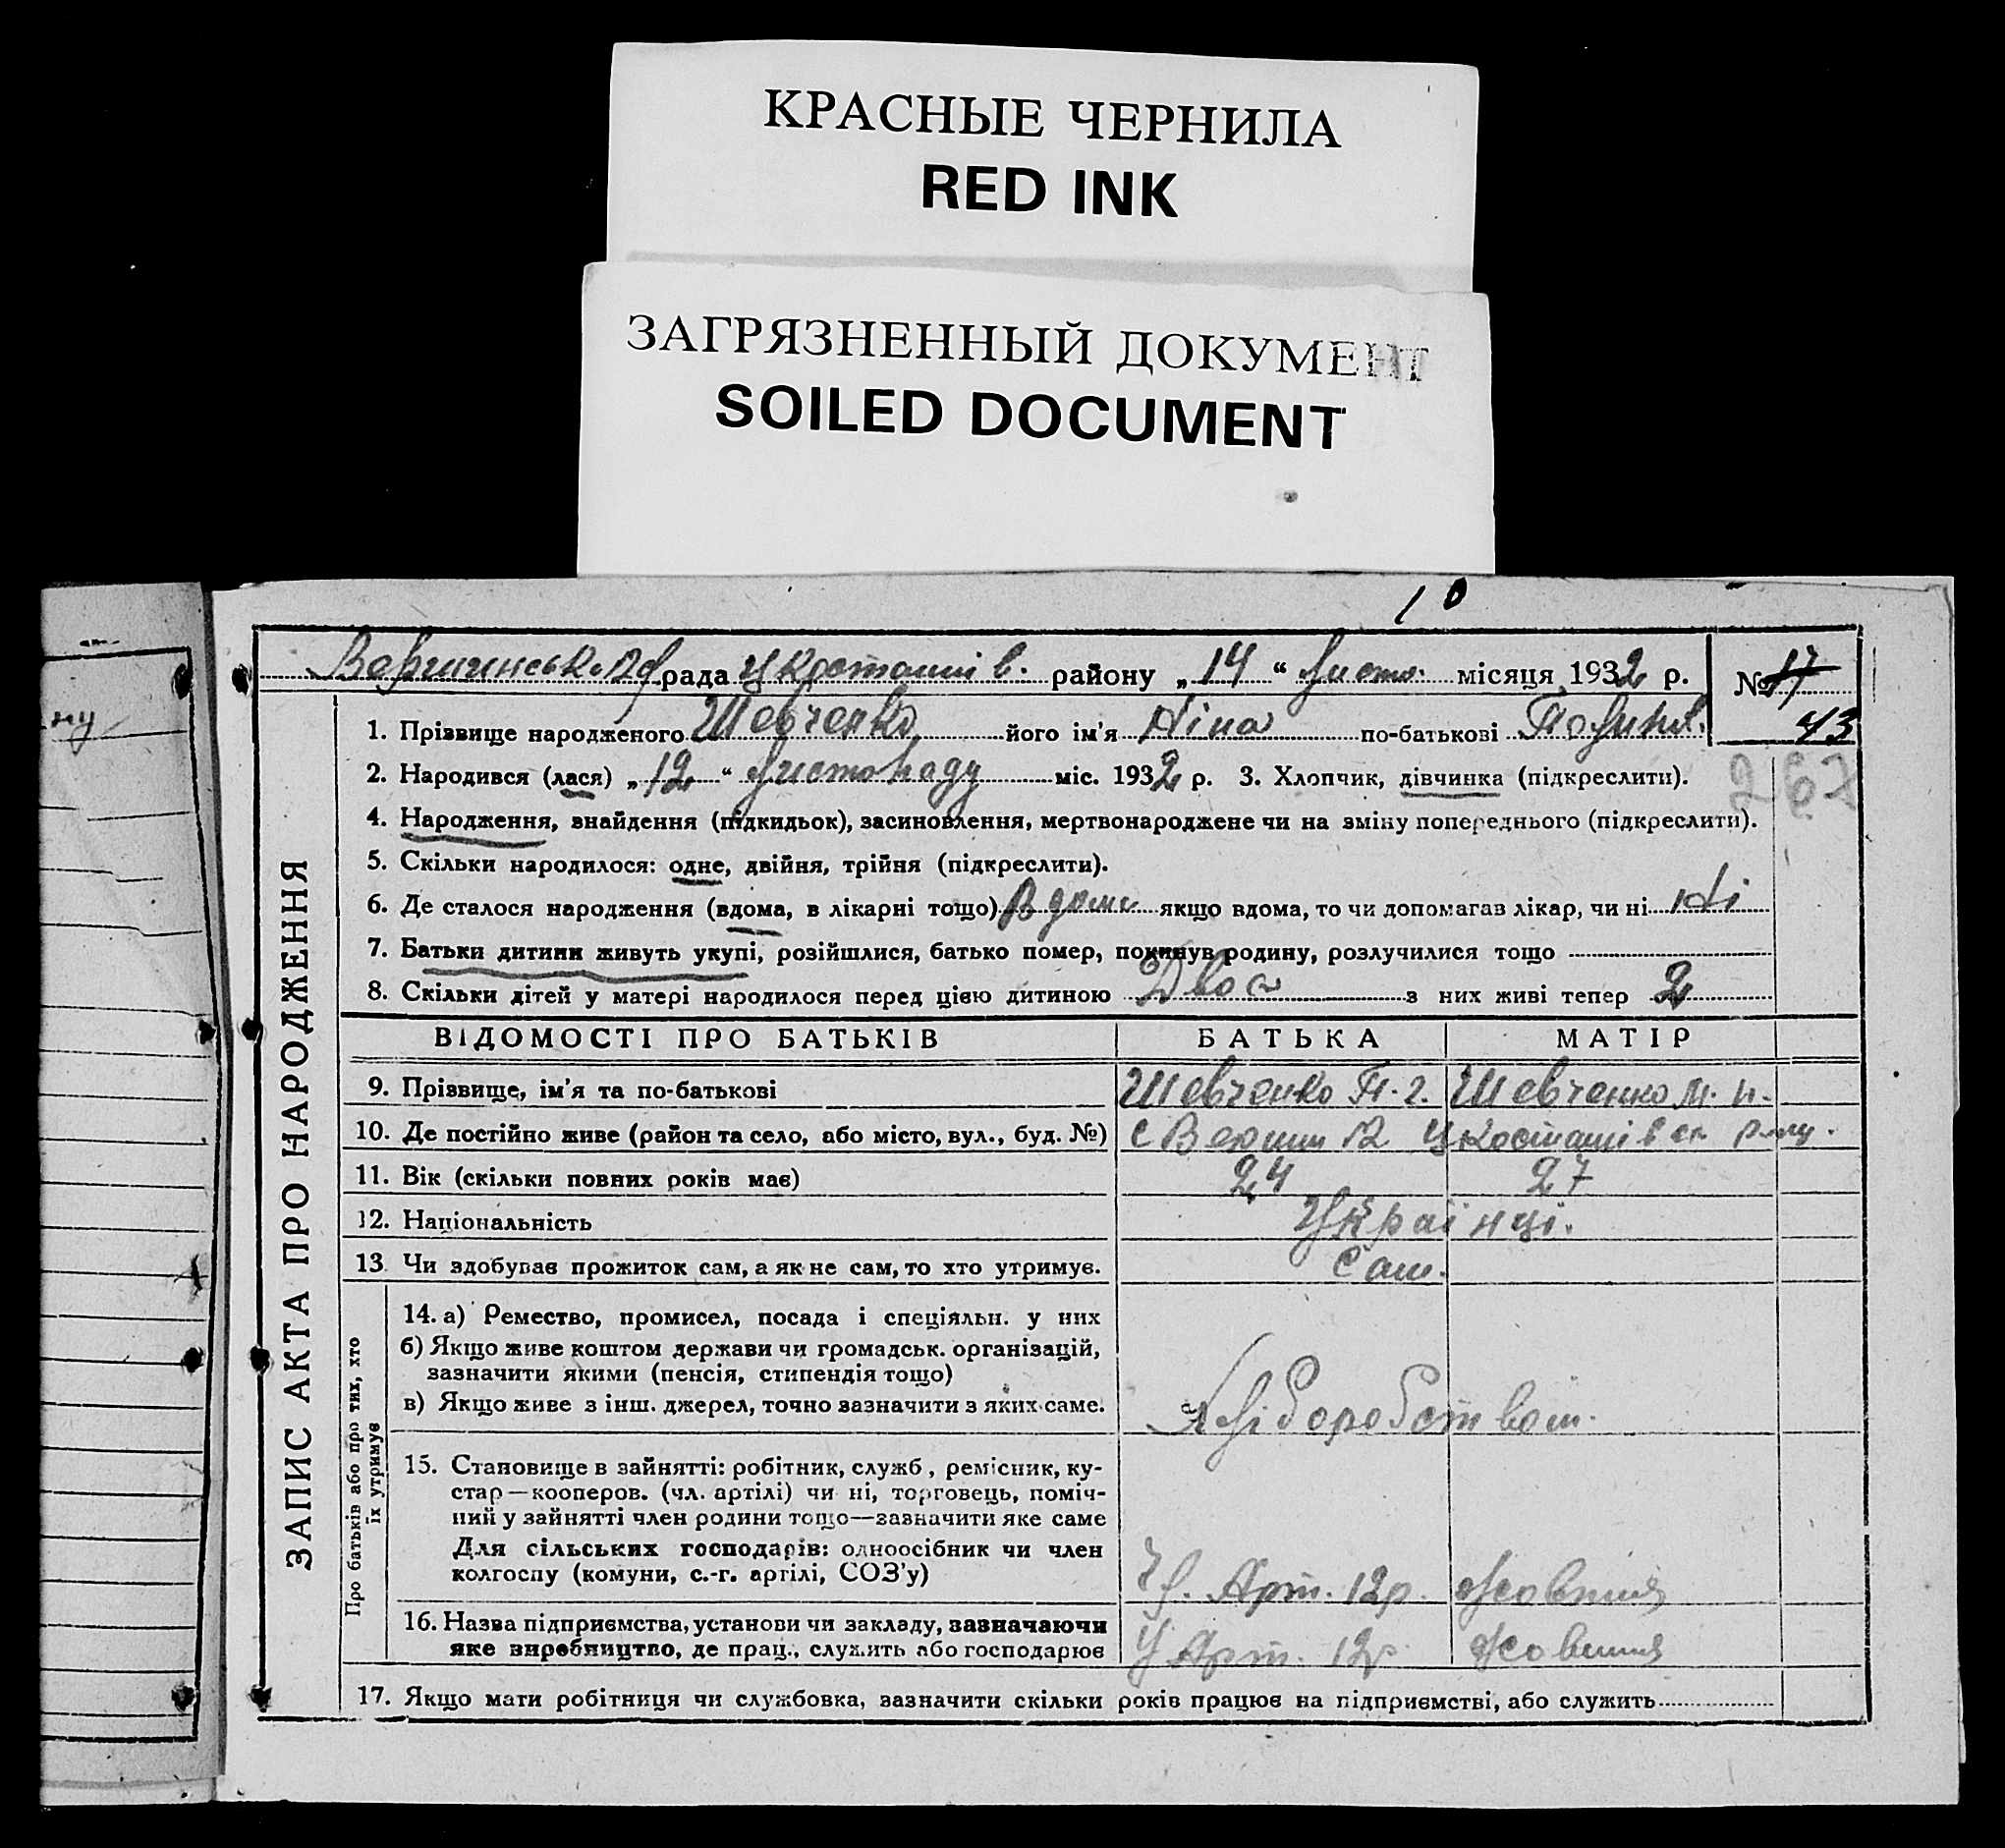 КРАСНЫЕ ЧЕРНИЛА
RED INK
ЗАГРЯЗНЕННЫЙ ДОКУМЕНТ
SOILED DOCUMENT
10
рада района „14“ Листо. місяця 1932 р. № 17
43
ЗАПИС АКТА ПРО НАРОДЖЕННЯ
1. Прізвище народженого Шевченко його ім'я Ніна по-батькові
2. Народився (лася) „12“ Листопаду міс. 1932 р. 3. Хлопчик, дівчинка (підкреслити).
267
4. Народження, знайдення (підкидьок), засиновлення, мертвонароджене чи на зміну попереднього (підкреслити).
5. Скільки народилося: одне, двійня, трійня (підкреслити).
6. Де сталося народження (вдома, в лікарні тощо) Вдома якщо вдома, то чи допомагав лікар, чи ні Ні
7. Батьки дитини живуть укупі, розійшлися, батько помер, покинув родину, розлучилися тощо
8. Скільки дітей у матері народилося перед цією дитиною Двоє з них живі тепер 2
ВІДОМОСТІ ПРО БАТЬКІВ БАТЬКА МАТІР
9. Прізвище, ім'я та по-батькові Шевченко П. Г. Шевченко М. Н.
10. Де постійно живе (район та село, або місто, вул., буд. №) с
11. Вік (скільки повних років має) 24 27
12. Національність Українці.
13. Чи здобував прожиток сам, а як не сам, то хто утримує. Сам.
Про батьків або про тих, хто їх утримує
14. а) Ремество, промисел, посада і спеціяльн. у них
б) Якщо живе коштом держави чи громадськ. організацій,
зазначити якими (пенсія, стипендія тощо)
в) Якщо живе з інш. джерел, точно зазначити з яких саме. Хліборобством.
15. Становище в зайнятті: робітник, служб., ремісник, ку-
стар—кооперов. (чл. артілі) чи ні, торговець, поміч-
ний у зайнятті член родини тощо—зазначити яке саме
Для сільських господарів: одноосібник чи член
колгоспу (комуни, с.-г. артілі, СОЗ'у) Чл. Арт. 12р. Жовтня
16. Назва підприємства, установи чи закладу, зазначаючи
яке виробництво, де прац., служить або господарює У Арт. 12р. Жовтня
17. Якщо мати робітниця чи службовка, зазначити скільки років працює на підприємстві, або служить